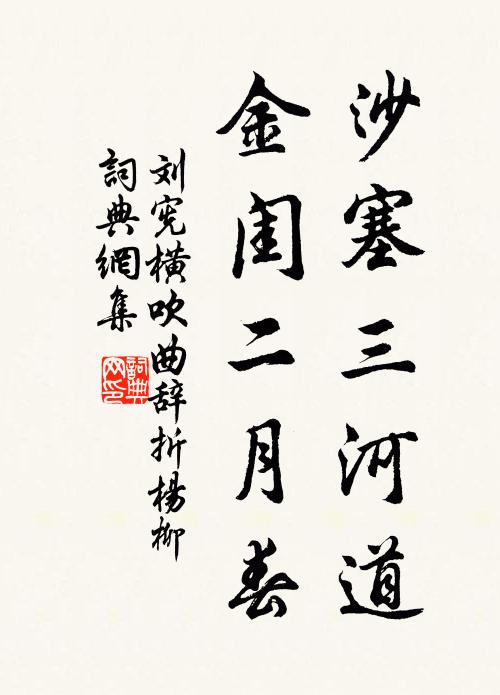 沙塞三河道
金闺二月春
刘宪横吹曲辞折楊柳
詞典網集
詞典
网印